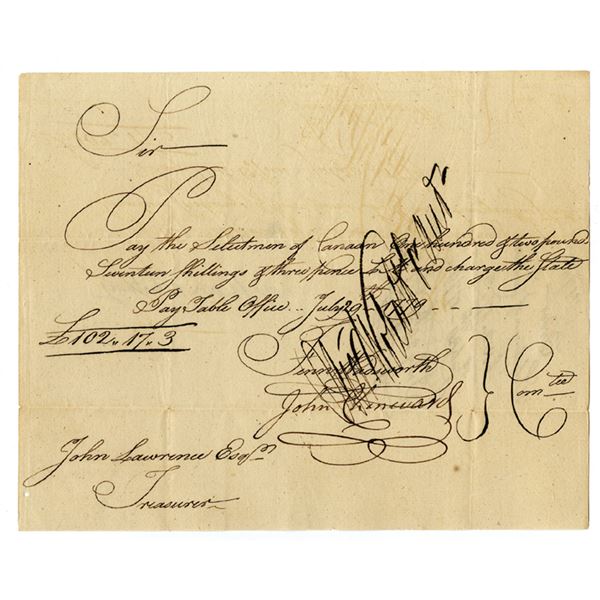 Sir
Pay the Selectmen of Canaan One hundred & two pounds
Seventeen Shillings & three pence and charge the State
Pay Table Office .. July 29 1779
£102 " 17 " 3
Fenn Wadsworth
John Chenward } Comtee
John Lawrence Esqr
Treasurer